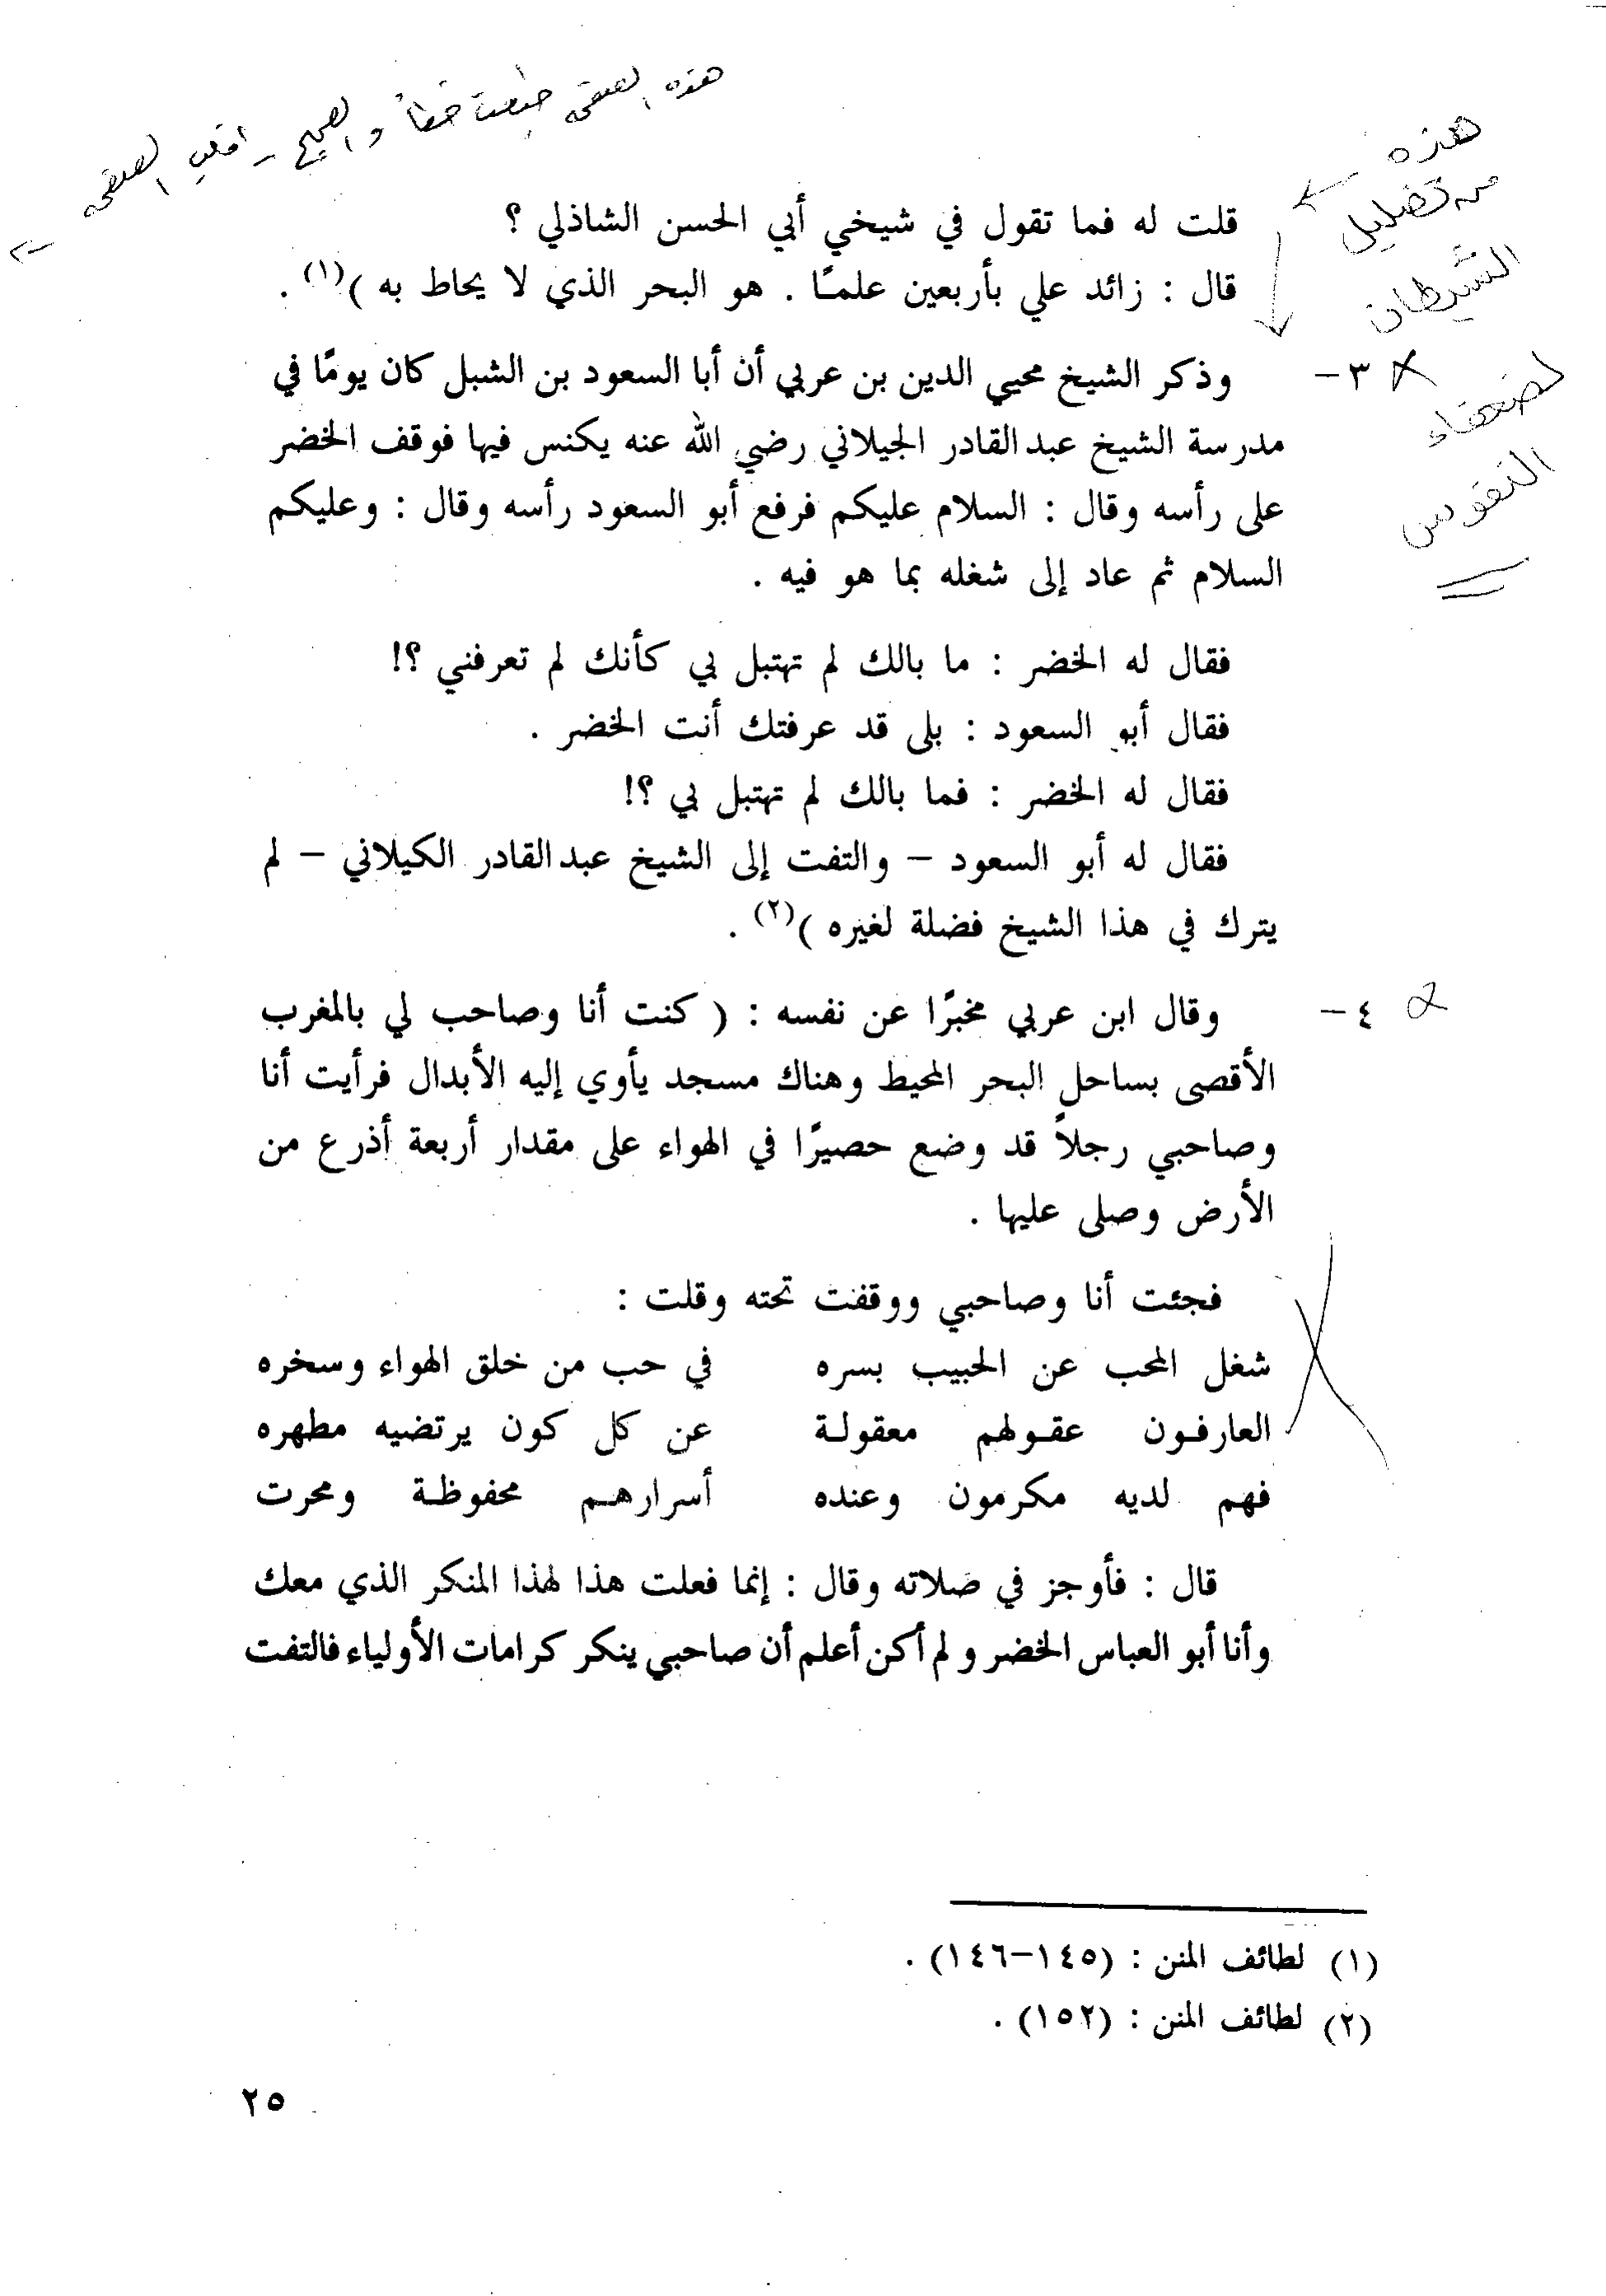 هذه الصفحة طبعت خطأ والصحيح - اقلب الصفحة
هذه
من تضليل
الشيطان
لضعفاء
النفوس
قلت له فما تقول في شيخي أبي الحسن الشاذلي ؟
قال : زائد علي بأربعين علمـًا . هو البحر الذي لا يحاط به )(١) .
٣- وذكر الشيخ محيي الدين بن عربي أن أبا السعود بن الشبل كان يومًا في
مدرسة الشيخ عبدالقادر الجيلاني رضي الله عنه يكنس فيها فوقف الخضر
على رأسه وقال : السلام عليكم فرفع أبو السعود رأسه وقال : وعليكم
السلام ثم عاد إلى شغله بما هو فيه .
فقال له الخضر : ما بالك لم تهتبل بي كأنك لم تعرفني ؟!
فقال أبو السعود : بلى قد عرفتك أنت الخضر .
فقال له الخضر : فما بالك لم تهتبل بي ؟!
فقال له أبو السعود – والتفت إلى الشيخ عبدالقادر الكيلاني – لم
يترك في هذا الشيخ فضلة لغيره )(٢) .
٤- وقال ابن عربي مخبرًا عن نفسه : ( كنت أنا وصاحب لي بالمغرب
الأقصى بساحل البحر المحيط وهناك مسجد يأوي إليه الأبدال فرأيت أنا
وصاحبي رجلاً قد وضع حصيرًا في الهواء على مقدار أربعة أذرع من
الأرض وصلى عليها .
فجئت أنا وصاحبي ووقفت تحته وقلت :
شغل المحب عن الحبيب بسره في حب من خلق الهواء وسخره
العارفـون عقـولهم معقولـة عن كل كون يرتضيه مطهره
فهم لديه مكرمون وعنده أسرارهـم محفوظـة ومحرت
قال : فأوجز في صلاته وقال : إنما فعلت هذا لهذا المنكر الذي معك
وأنا أبو العباس الخضر ولم أكن أعلم أن صاحبي ينكر كرامات الأولياء فالتفت
(١) لطائف المنن : (١٤٥–١٤٦) .
(٢) لطائف المنن : (١٥٢) .
٢٥